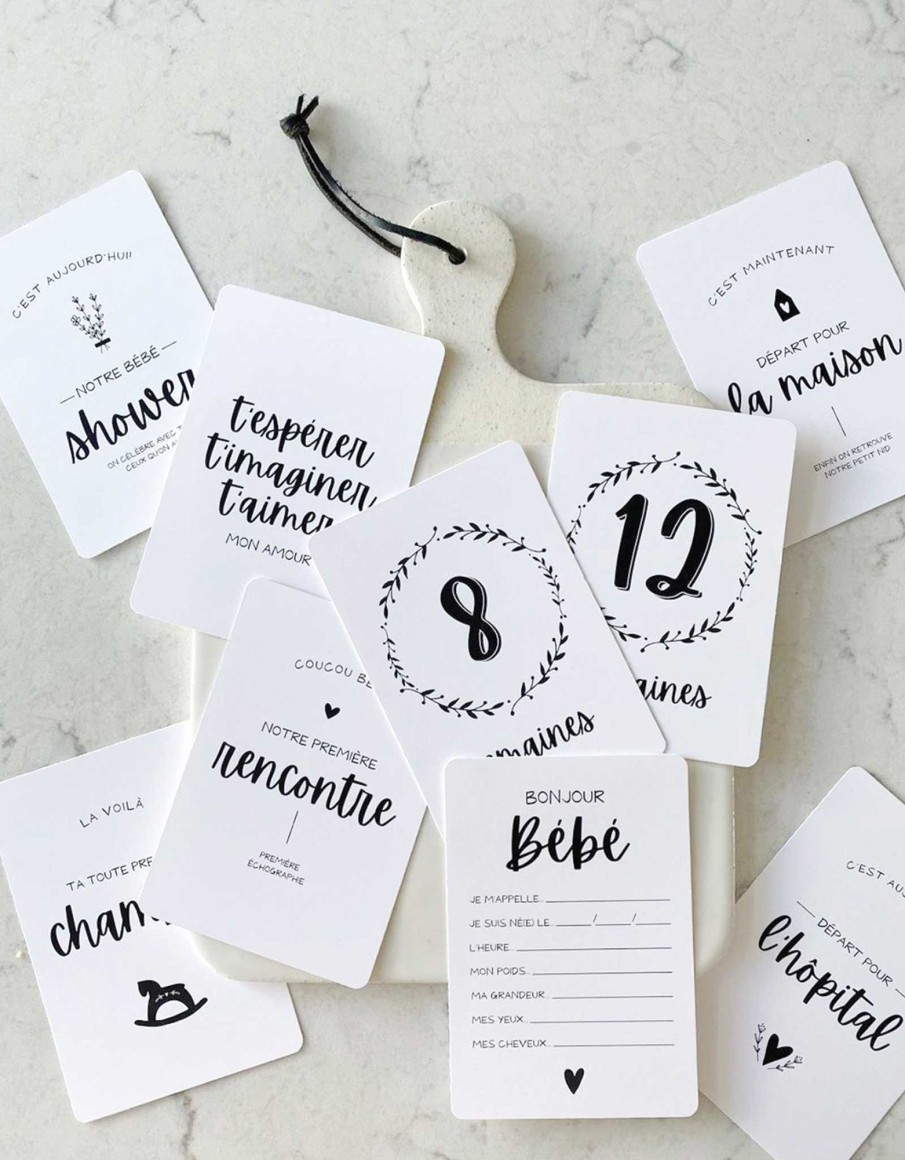 C'EST AUJOURD'HUI!
NOTRE BÉBÉ
shower
ON CÉLÈBRE AVEC
CEUX QU'ON
t'espérer
t'imaginer
t'aimer
MON AMOUR
C'EST MAINTENANT
DÉPART POUR
la maison
ENFIN ON RETROUVE
NOTRE PETIT NID
12
aines
8
emaines
COUCOU BÉ
NOTRE PREMIÈRE
rencontre
PREMIÈRE
ÉCHOGRAPHIE
LA VOILÀ
TA TOUTE PRE
cham
BONJOUR
Bébé
JE M'APPELLE..
JE SUIS NÉ(E) LE.. / /
L'HEURE..
MON POIDS..
MA GRANDEUR..
MES YEUX..
MES CHEVEUX..
C'EST AUJ
DÉPART POUR
l'hôpital